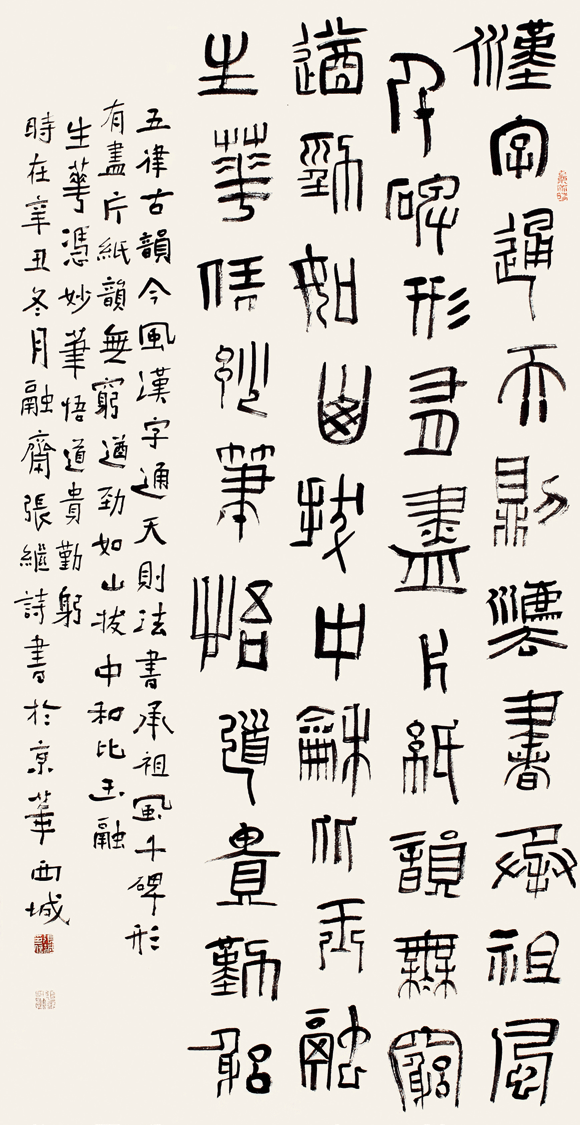 漢字通天則法書承祖風
千碑形有盡片紙韻無窮
遒勁如山拔中和比玉融
生華憑妙筆悟道貴勤躬
五律古韻今風漢字通天則法書承祖風千碑形
有盡片紙韻無窮遒勁如山拔中和比玉融
生華憑妙筆悟道貴勤躬
時在辛丑冬月融齋張繼詩書於京華西城